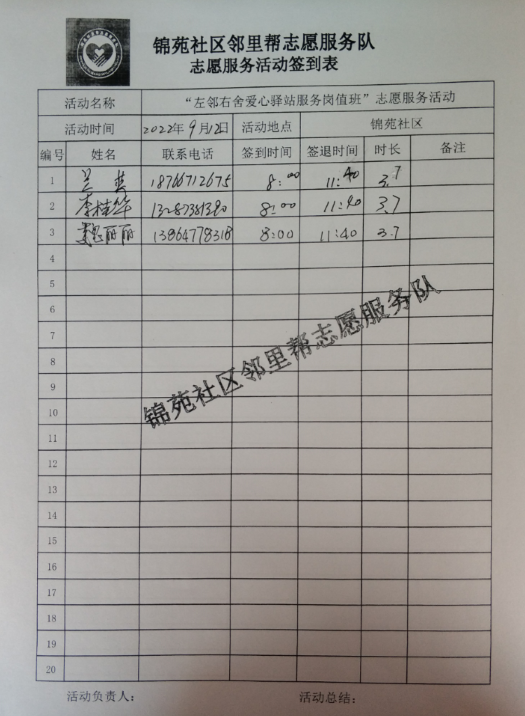 锦苑社区邻里帮志愿服务队
志愿服务活动签到表
活动名称 “左邻右舍爱心驿站服务岗值班”志愿服务活动
活动时间 2022年9月12日 活动地点 锦苑社区
编号 姓名 联系电话 签到时间 签退时间 时长 备注
1 18766712675 8:00 11:40 3.7
2 李桂华 8:00 11:40 3.7
3 魏丽丽 13864778318 8:00 11:40 3.7
4
5
6
7
8
9
10
11
12
13
14
15
16
17
18
19
20
锦苑社区邻里帮志愿服务队
活动负责人: 活动总结: